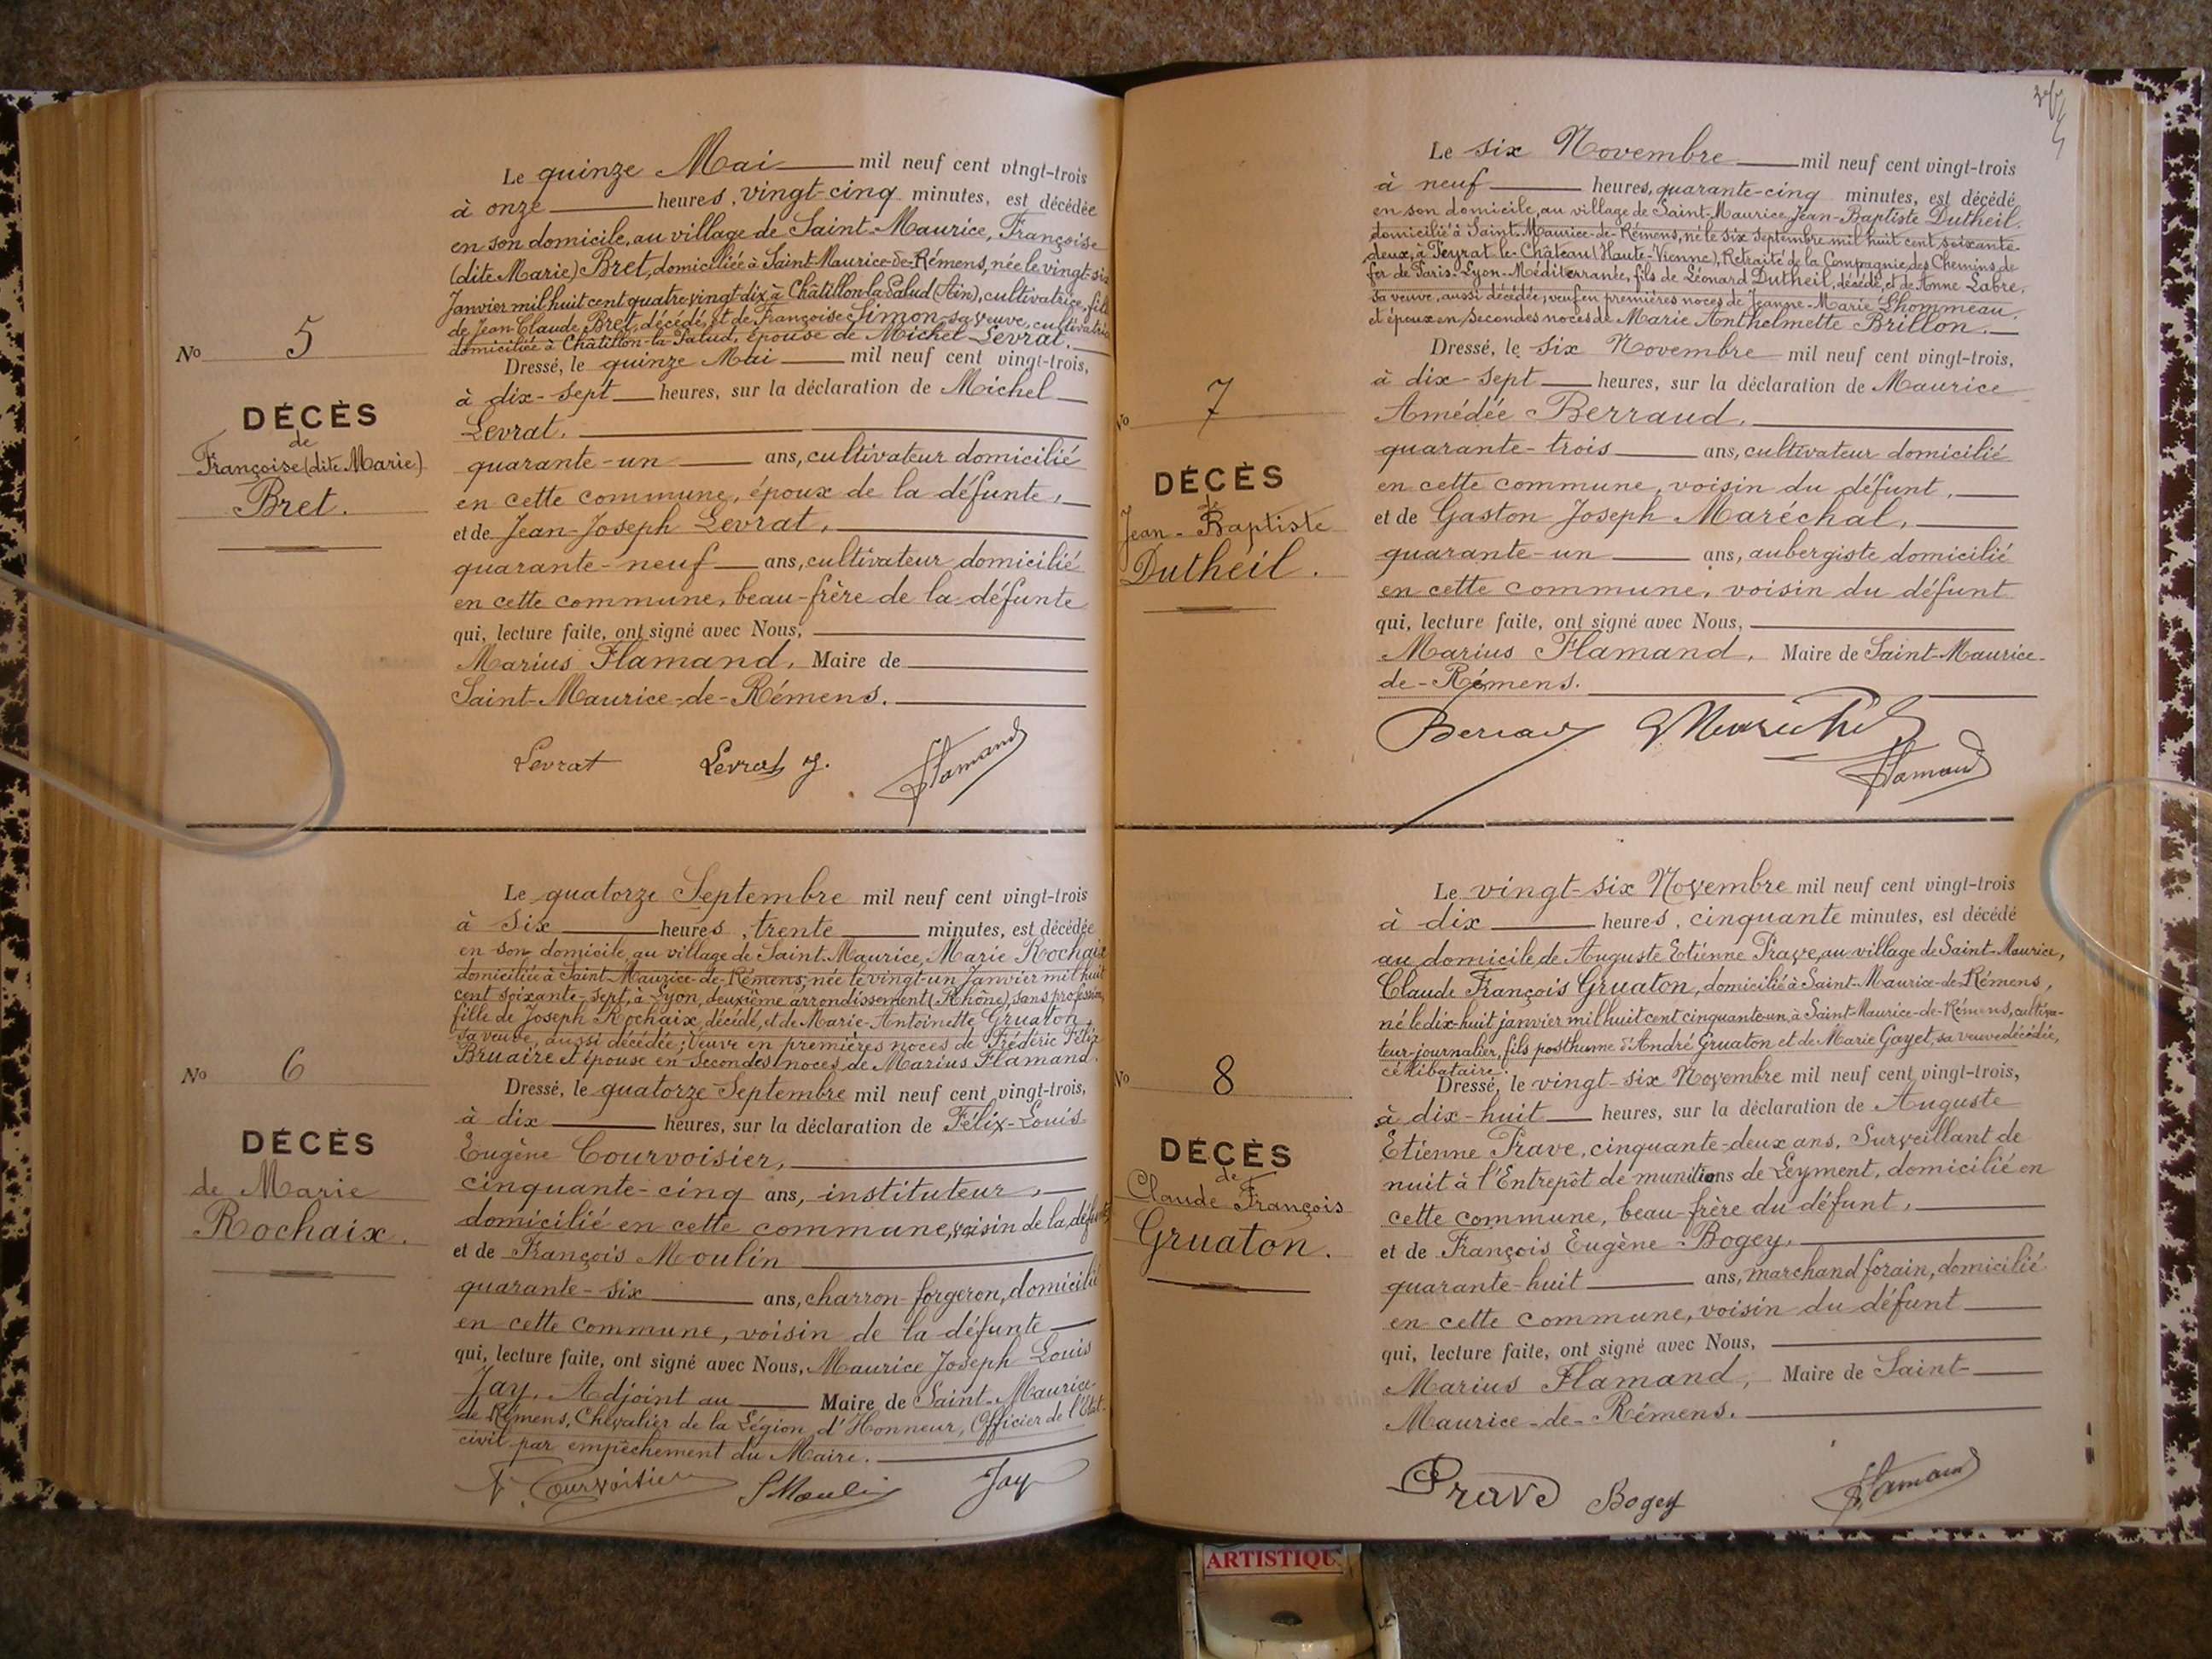 Le quinze Mai mil neuf cent vingt-trois
à onze heures, vingt-cinq minutes, est décédée
en son domicile, au village de Saint-Maurice, Françoise
(dite Marie) Bret, domiciliée à Saint-Maurice-de-Rémens, née le vingt-six
Janvier mil huit cent quatre vingt-dix à Châtillon-la-Palud (Ain), cultivatrice, fille
de Jean-Claude Bret, décédé, et de Françoise Simon, sa veuve, cultivatrice
domiciliée à Châtillon-la-Palud, épouse de Michel Levrat.
No 5
DÉCÈS
de
Françoise (dite Marie)
Bret.
Dressé, le quinze Mai mil neuf cent vingt-trois,
à dix-sept heures, sur la déclaration de Michel
Levrat.
quarante-un ans, cultivateur domicilié
en cette commune, époux de la défunte,
et de Jean-Joseph Levrat,
quarante-neuf ans, cultivateur domicilié
en cette commune, beau-frère de la défunte
qui, lecture faite, ont signé avec Nous,
Marius Flamand, Maire de
Saint-Maurice-de-Rémens.
Levrat Levrat J. Flamand
Le quatorze Septembre mil neuf cent vingt-trois
à six heures, trente minutes, est décédée
en son domicile, au village de Saint-Maurice, Marie Rochaix
domiciliée à Saint-Maurice-de-Rémens, née le vingt-un Janvier mil huit
cent soixante-sept, à Lyon, deuxième arrondissement (Rhône), sans profession,
fille de Joseph Rochaix, décédé, et de Marie-Antoinette Gruaton,
sa veuve, aussi décédée; Veuve en premières noces de Frédéric Félix
Bruaire et épouse en secondes noces de Marius Flamand.
No 6
DÉCÈS
de Marie
Rochaix.
Dressé, le quatorze Septembre mil neuf cent vingt-trois,
à dix heures, sur la déclaration de Félix-Louis
Eugène Courvoisier,
cinquante-cinq ans, instituteur,
domicilié en cette commune, voisin de la défunte
et de François Moulin
quarante-six ans, charron-forgeron, domicilié
en cette commune, voisin de la défunte
qui, lecture faite, ont signé avec Nous, Maurice Joseph Louis
Jay, Adjoint au Maire de Saint-Maurice-
de Rémens, Chevalier de la Légion d'Honneur, Officier de l'Etat-
civil par empêchement du Maire.
F. Courvoisier F Moulin Jay
Le six Novembre mil neuf cent vingt-trois
à neuf heures, quarante-cinq minutes, est décédé
en son domicile, au village de Saint-Maurice, Jean-Baptiste Dutheil,
domicilié à Saint-Maurice-de-Rémens, né le six Septembre mil huit cent soixante-
deux, à Peyrat-le-Château (Haute-Vienne), Retraité de la Compagnie des Chemins de
fer de Paris-Lyon-Méditerranée, fils de Léonard Dutheil, décédé, et de Anne Labre,
sa veuve, aussi décédée; veuf en premières noces de Jeanne-Marie Lhommeau,
et époux en secondes noces de Marie Anthelmette Brillon.
No 7
DÉCÈS
de
Jean-Baptiste
Dutheil.
Dressé, le six Novembre mil neuf cent vingt-trois,
à dix-sept heures, sur la déclaration de Maurice
Amédée Berraud,
quarante-trois ans, cultivateur domicilié
en cette commune, voisin du défunt,
et de Gaston Joseph Maréchal,
quarante-un ans, aubergiste domicilié
en cette commune, voisin du défunt
qui, lecture faite, ont signé avec Nous,
Marius Flamand, Maire de Saint-Maurice-
de-Rémens.
Flamand
Le vingt-six Novembre mil neuf cent vingt-trois
à dix heures, cinquante minutes, est décédé
au domicile de Auguste Etienne Prave, au village de Saint-Maurice,
Claude François Gruaton, domicilié à Saint-Maurice-de-Rémens,
né le dix-huit janvier mil huit cent cinquante-un à Saint-Maurice-de-Rémens, cultiva-
teur-journalier, fils posthume d'André Gruaton et de Marie Gayet, sa veuve décédée,
célibataire.
No 8
DÉCÈS
de
Claude François
Gruaton.
Dressé, le vingt-six Novembre mil neuf cent vingt-trois,
à dix-huit heures, sur la déclaration de Auguste
Etienne Prave, cinquante-deux ans, Surveillant de
nuit à l'Entrepôt de munitions de Leyment, domicilié en
cette commune, beau-frère du défunt,
et de François Eugène Bogey,
quarante-huit ans, marchand forain, domicilié
en cette commune, voisin du défunt
qui, lecture faite, ont signé avec Nous,
Marius Flamand, Maire de Saint-
Maurice-de-Rémens.
Prave Bogey Flamand
ARTISTIQU